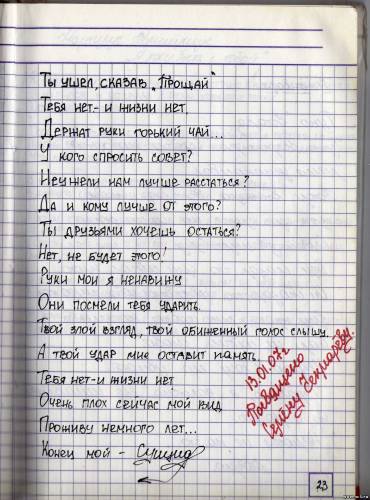 Ты ушел, сказав „Прощай"
Тебя нет - и жизни нет.
Держат руки горький чай...
У кого спросить совет?
Неужели нам лучше расстаться?
Да и кому лучше от этого?
Ты друзьями хочешь остаться?
Нет, не будет этого!
Руки мои я ненавижу
Они посмели тебя ударить.
Твой злой взгляд, твой обиженный голос слышу.
А твой удар мне оставит память.
Тебя нет - и жизни нет
Очень плох сейчас мой вид
Проживу немного лет...
Конец мой - Суицид
13.01.07г.
Посвящено
23